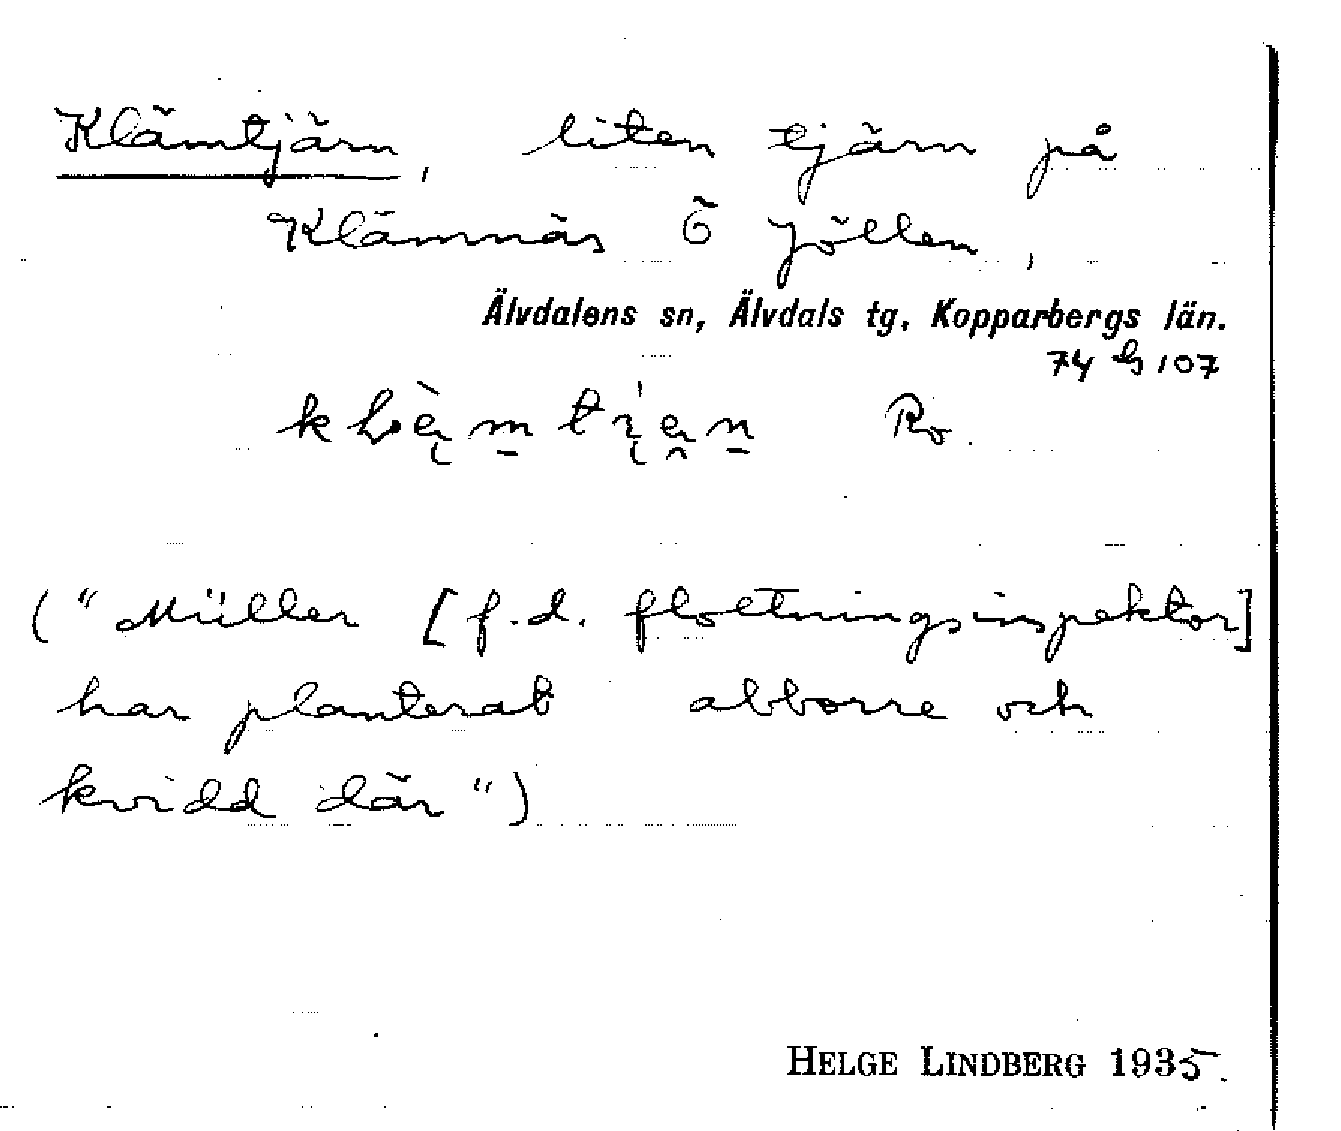 Klämtjärn, liten tjärn på
Klämnäs Ö Jöllen,
Älvdalens sn, Älvdals tg, Kopparbergs län.
74 h 107
Ro.
("Müller [f.d. flottningsinspektor]
har planterat abborre och
kvidd där")
HELGE LINDBERG 1935.